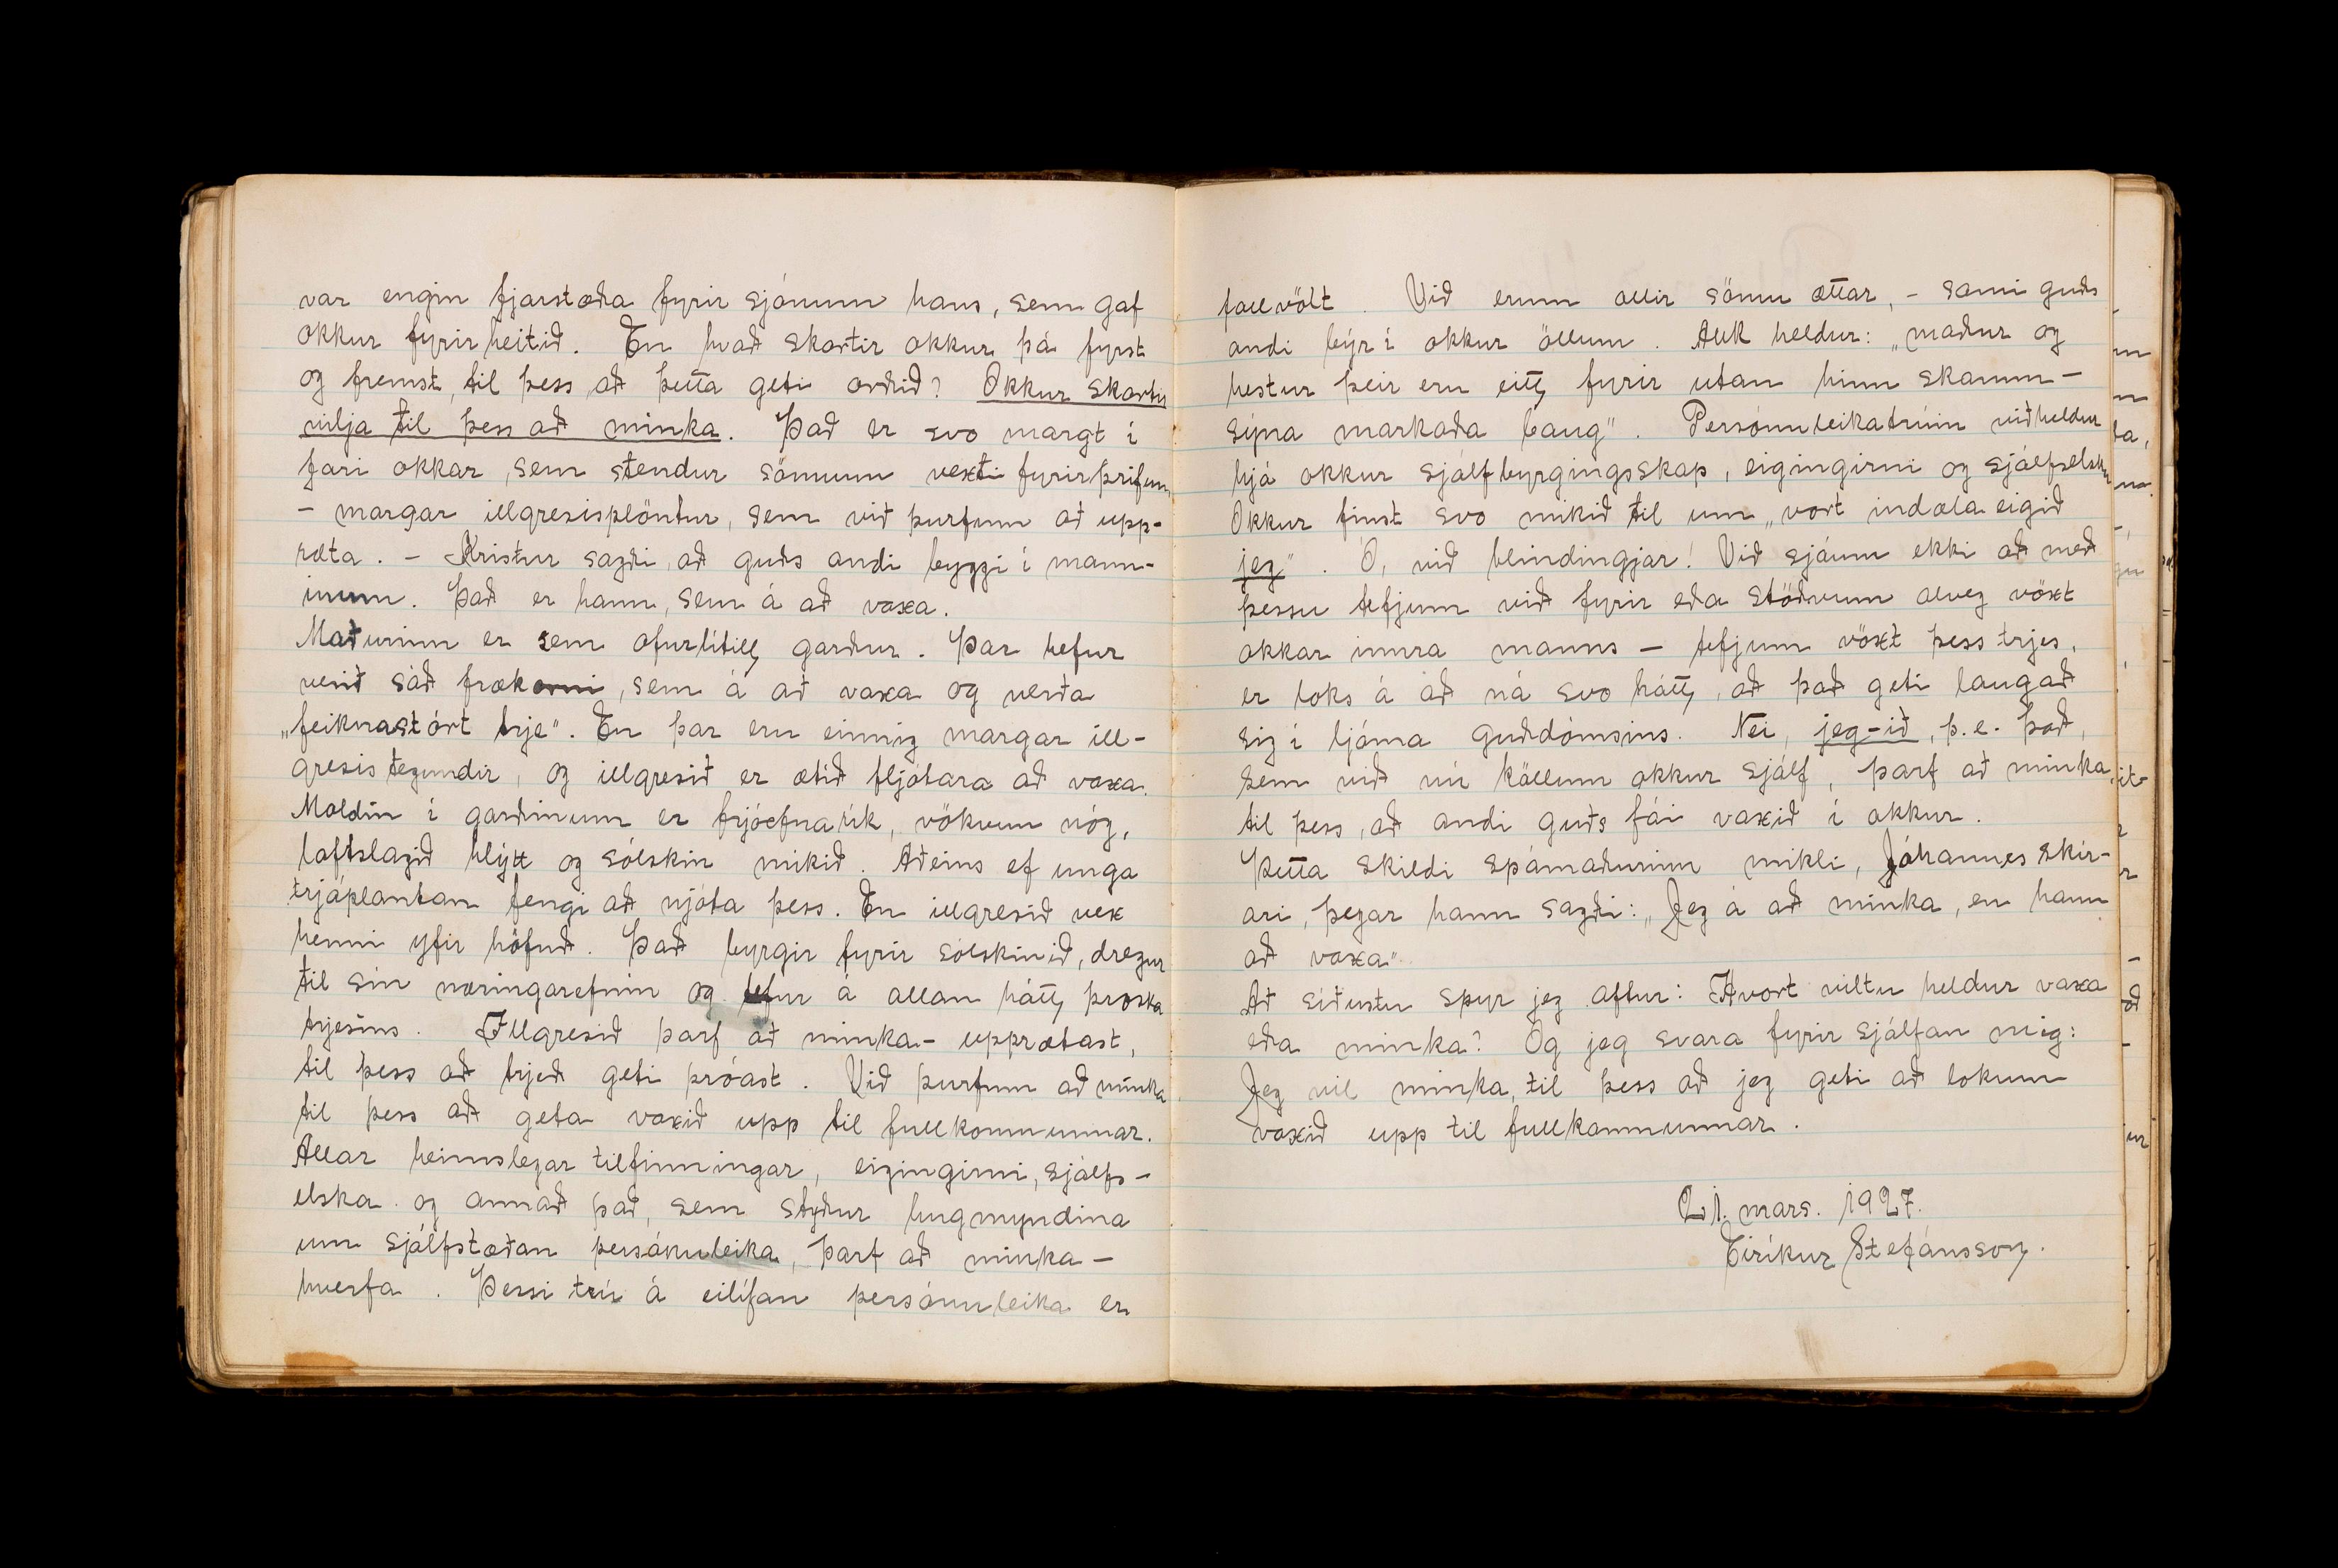 var engin fjarstæða fyrir sjónum hans, sem gaf
okkur fyrirheitið. En hvað skortir okkur þá fyrst
og fremst, til þess að þetta geti orðið? Okkur skortir
vilja til þess að minka. Það er svo margt í
fari okkar, sem stendur sönnum vexti fyrir þrifum,
– margar illgresisplöntur, sem við þurfum að upp-
ræta. – Kristur sagði, að guðs andi byggi í mann-
inum. Það er hann, sem á að vaxa.
Maðurinn er sem ofurlítill garður. Þar hefur
verið sáð frækorni, sem á að vaxa og verða
„feiknastórt trje". En þar eru einnig margar ill-
gresistegundir, og illgresið er ætið fljótara að vaxa.
Moldin í garðinum er frjóefnarík, vökvun nóg,
loftslagið hlýtt og sólskin mikið. Aðeins ef unga
trjáplantan fengi að njóta þess. En illgresið vex
henni yfir höfuð. Það byrgir fyrir sólskinið, dregur
til sín næringarefnin og tefur á allan hátt, þroska
trjesins. Illgresið þarf að minka – upprætast,
til þess að trjeð geti þróast. Við þurfum að minka
til þess að geta vaxið upp til fullkomnunnar.
Allar heimslegar tilfinningar, eigingirni, sjálfs-
elska og annað það, sem styður hugmyndina
um sjálfstæðan persónuleika, þarf að minka –
hverfa. Þessi trú á eilífan persónuleika er
fallvölt. Við erum allir sömu ættar, – sami guðs
andi býr í okkur öllum. Allt heldur: „maður og
hestur þeir eru eitt, fyrir utan hinn skamm-
sýna markaða baug". Persónuleikatrúin viðheldur
hjá okkur sjálfbyrgingsskap, eigingirni og sjálfselsku
Okkur finst svo mikið til um „vort indæla eigið
jeg". Ó, við blindingjar! Við sjáum ekki að með
þessu tefjum við fyrir eða stöðvum alveg vöxt
okkar innra manns – tefjum vöxt þess trjes,
er loks á að ná svo hátt, að það geti laugað
sig í ljóma guðdómsins. Nei, jeg-ið, þ.e. það,
sem við nú köllum okkur sjálf, þarf að minka,
til þess, að andi guðs fái vaxið í okkur.
Þetta skildi spámaðurinn mikli, Jóhannes skír-
ari, þegar hann sagði: „Jeg á að minka, en hann
að vaxa"
Að síðustu spyr jeg aftur: Hvort viltu heldur vaxa
eða minka? Og jeg svara fyrir sjálfan mig:
Jeg vil minka, til þess að jeg geti að lokum
vaxið upp til fullkomnunnar.
21. mars. 1927.
Eiríkur Stefánsson.